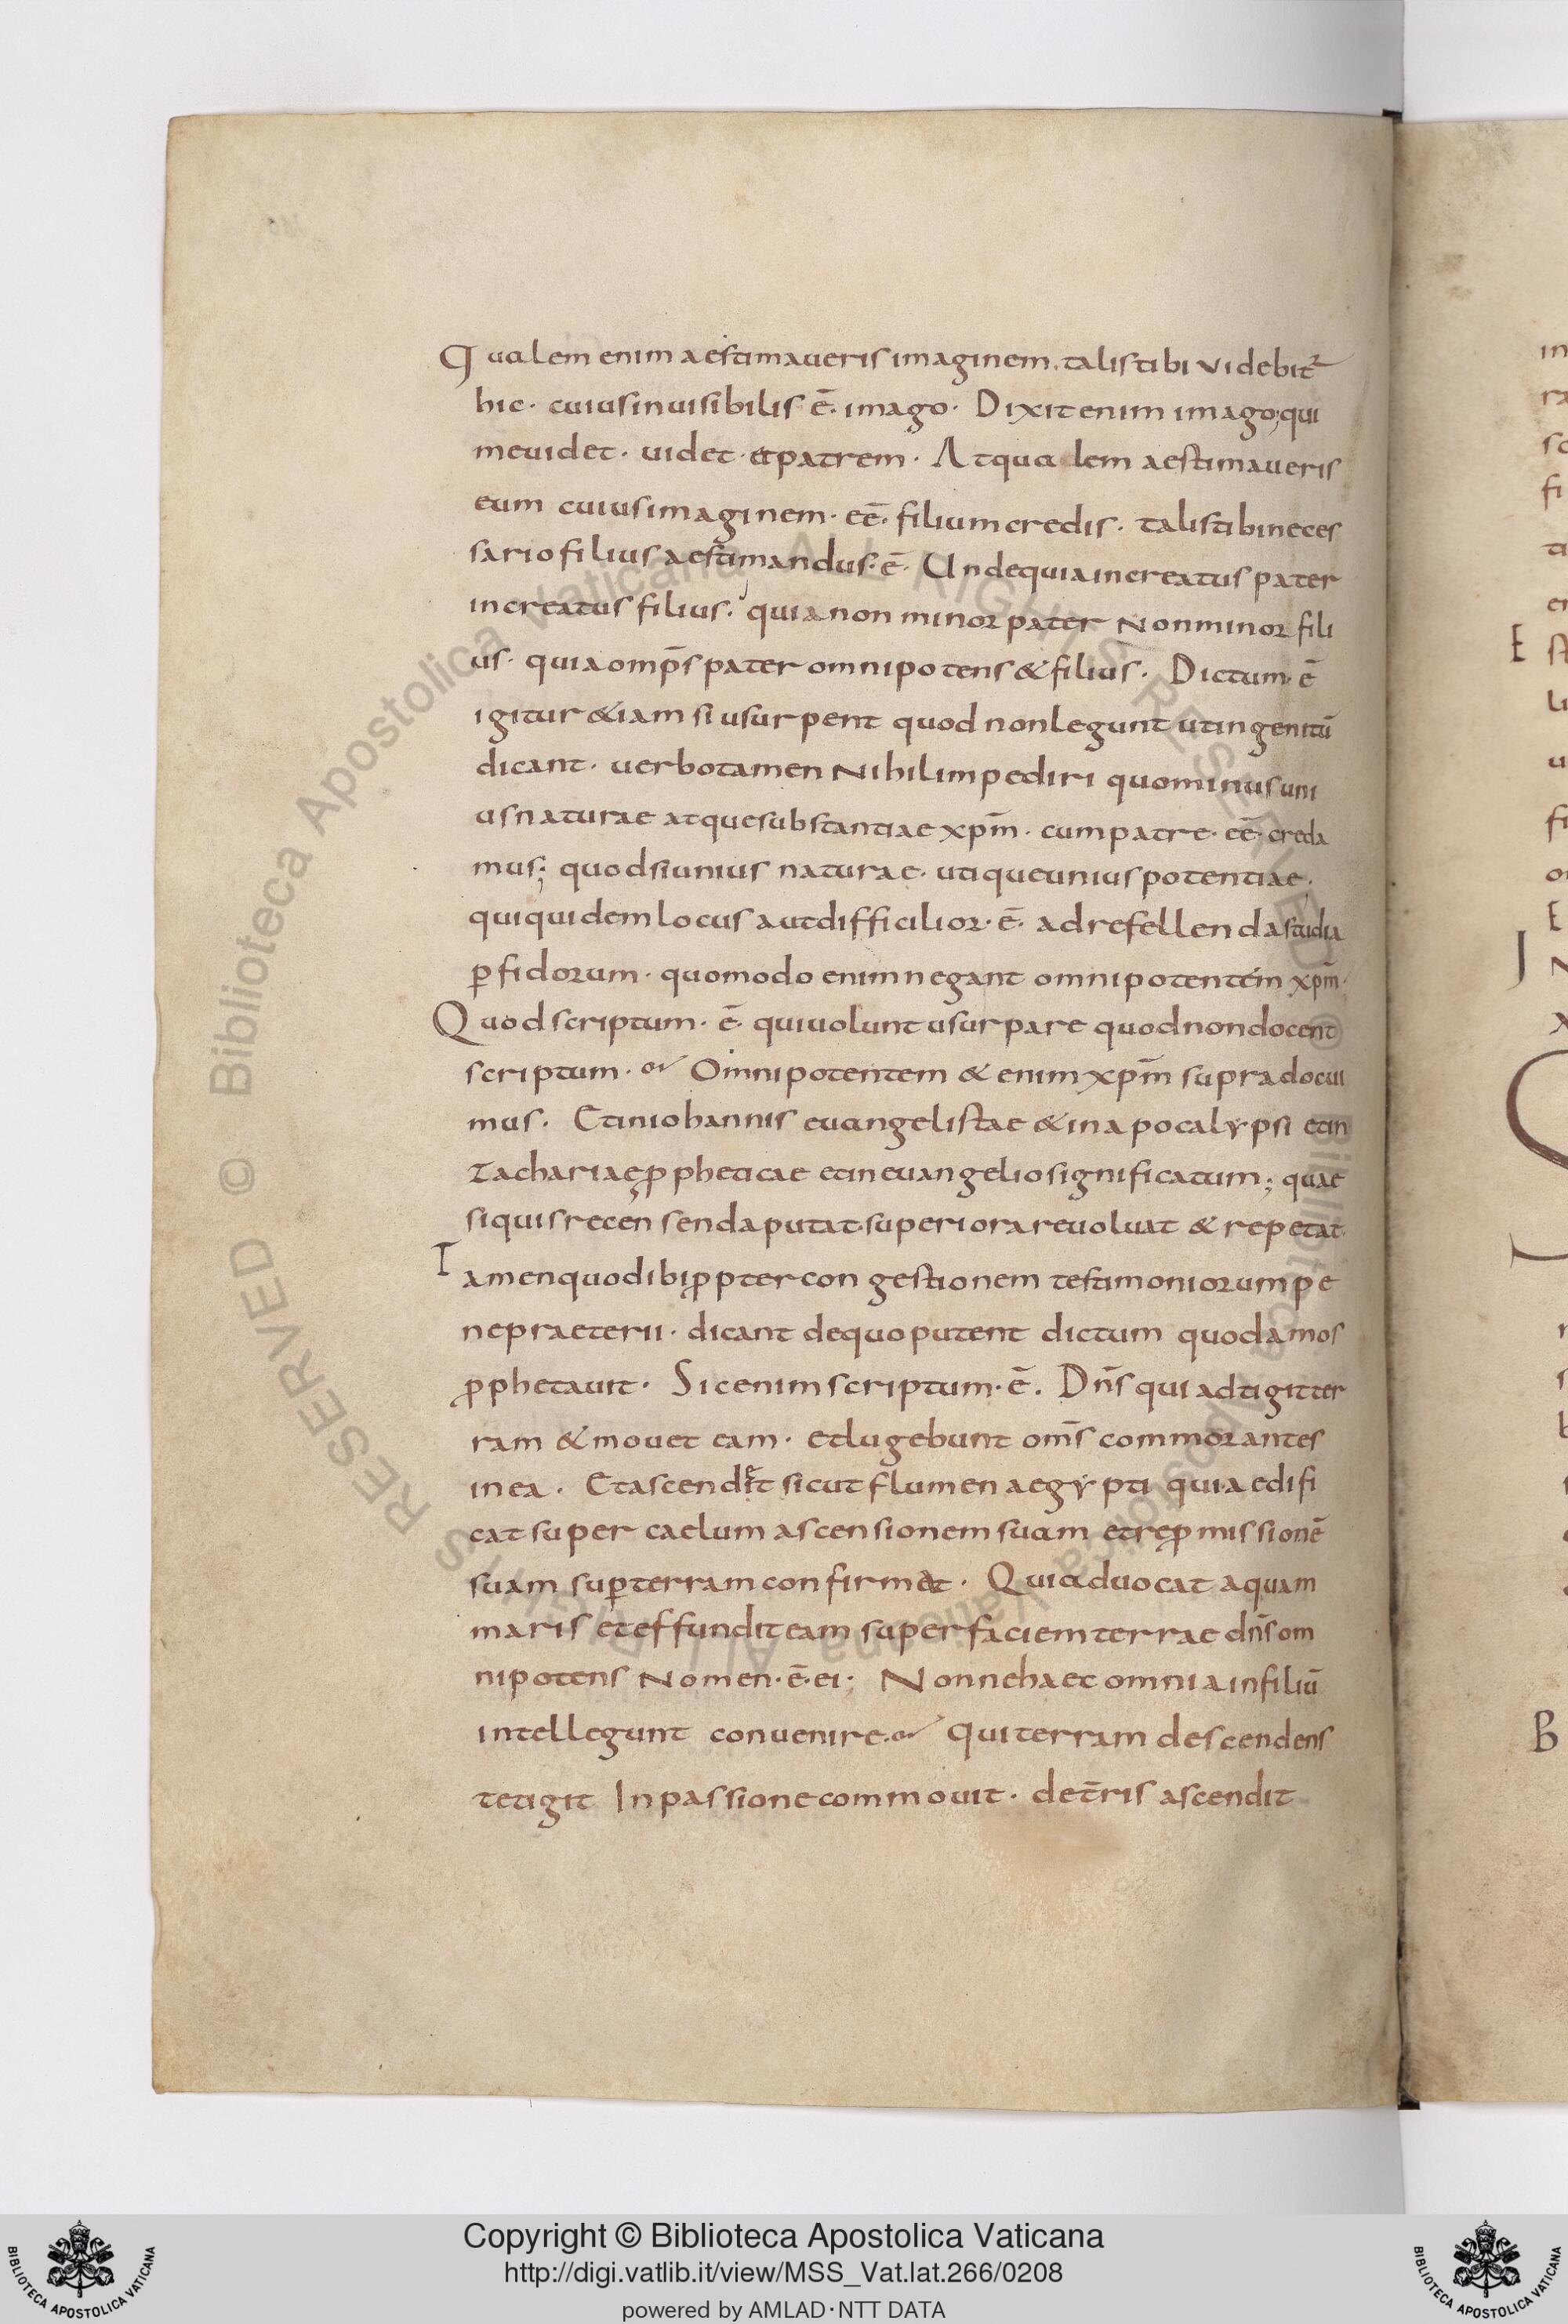 Qualem enim aestimaueris imaginem. talis tibi videbit᷑
hic· cuius inuisibilis ē· imago· Dixit enim imago; qui
me uidet· uidet· et patrem· At qualem aestimaueris
eum cuius imaginem· eē· filium credis· talis tibi neces
sario filius aestimandus· ē· Unde quia increatus pater
increatus filius· quia non minor pater Non minor fili
us· quia omp̄s pater omnipotens & filius· Dictum· ē
igitur &iam si usurpent quod non legunt ut ingenitū
dicant· uerbo tamen Nihil impediri quominus uni
us naturae atque substantiae xpm̄· cum patre· eē· creda
mus; quod si unius naturae· utique unius potentiae·
qui quidem locus aut difficilior· ē· ad refellenda studia
ꝑfidorum· quomodo enim negant omnipotentem xpm̄·
Quod scriptum· ē· qui uolunt usurpare quod non docent
scriptum· Omnipotentem & enim xpm̄ supra docui
mus· Et in iohannis euangelistae & in apocalypsi et in
Zachariae ꝓpheticae et in euangelio significatum; quae
si quis recensenda putat· superiora reuoluat & repetat·
Tamen quod ibi ꝓpter congestionem testimoniorum pe
ne praeterii· dicant de quo putent dictum quod amos
ꝓphetauit· Sic enim scriptum· ē. Dn̄s qui adtigit ter
ram & mouet eam· et lugebunt om̄s commorantes
in ea· Et ascendet sicut flumen aegypti qui aedifi
cat super caelum ascensionem suam et reꝓmissionē
suam suꝑ terram confirmat· Qui aduocat aquam
maris et effundit eam super faciem terrae dn̄s om
nipotens Nomen· ē· ei; Nonne haec omnia in filiū
intellegunt conuenire· qui terram descendens
tetigit In passione commouit· de t̄ris ascendit
Copyright © Biblioteca Apostolica Vaticana
http://digi.vatlib.it/view/MSS_Vat.lat.266/0208
powered by AMLAD·NTT DATA